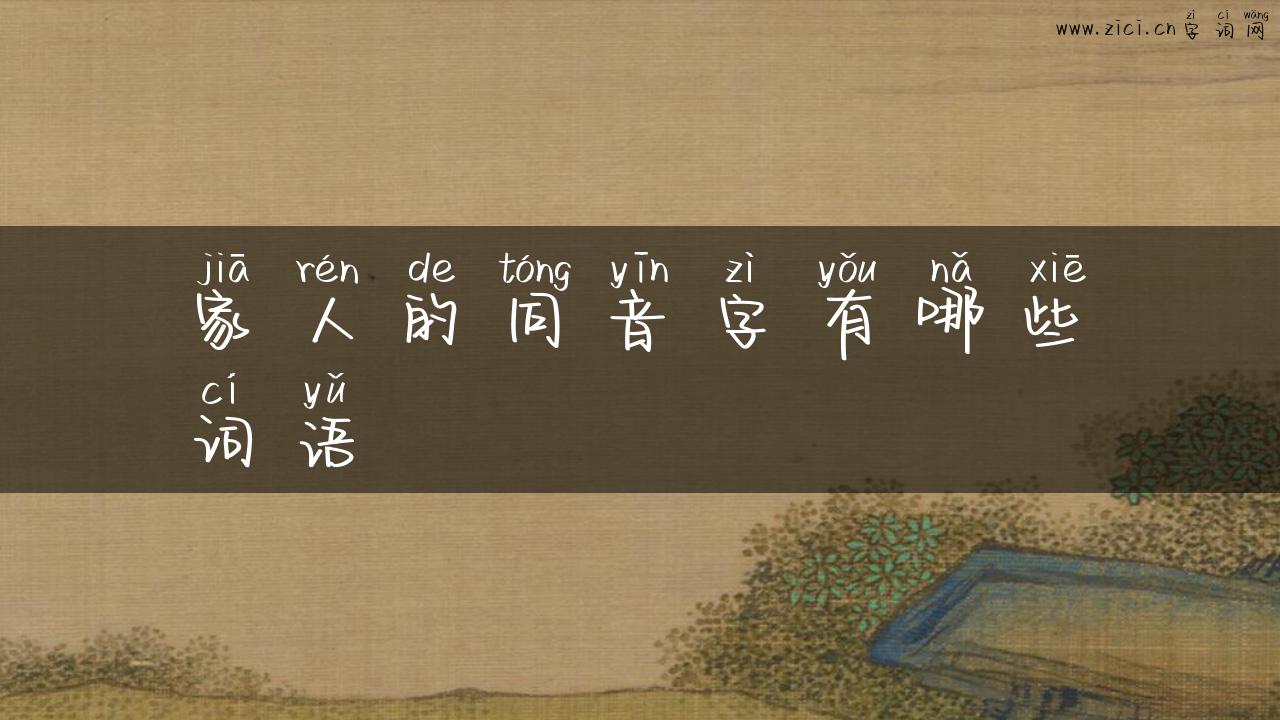 zì cí wǎng
www.zici.cn 字词网
jiā rén de tóng yīn zì yǒu nǎ xiē
家人的同音字有哪些
cí yǔ
词语